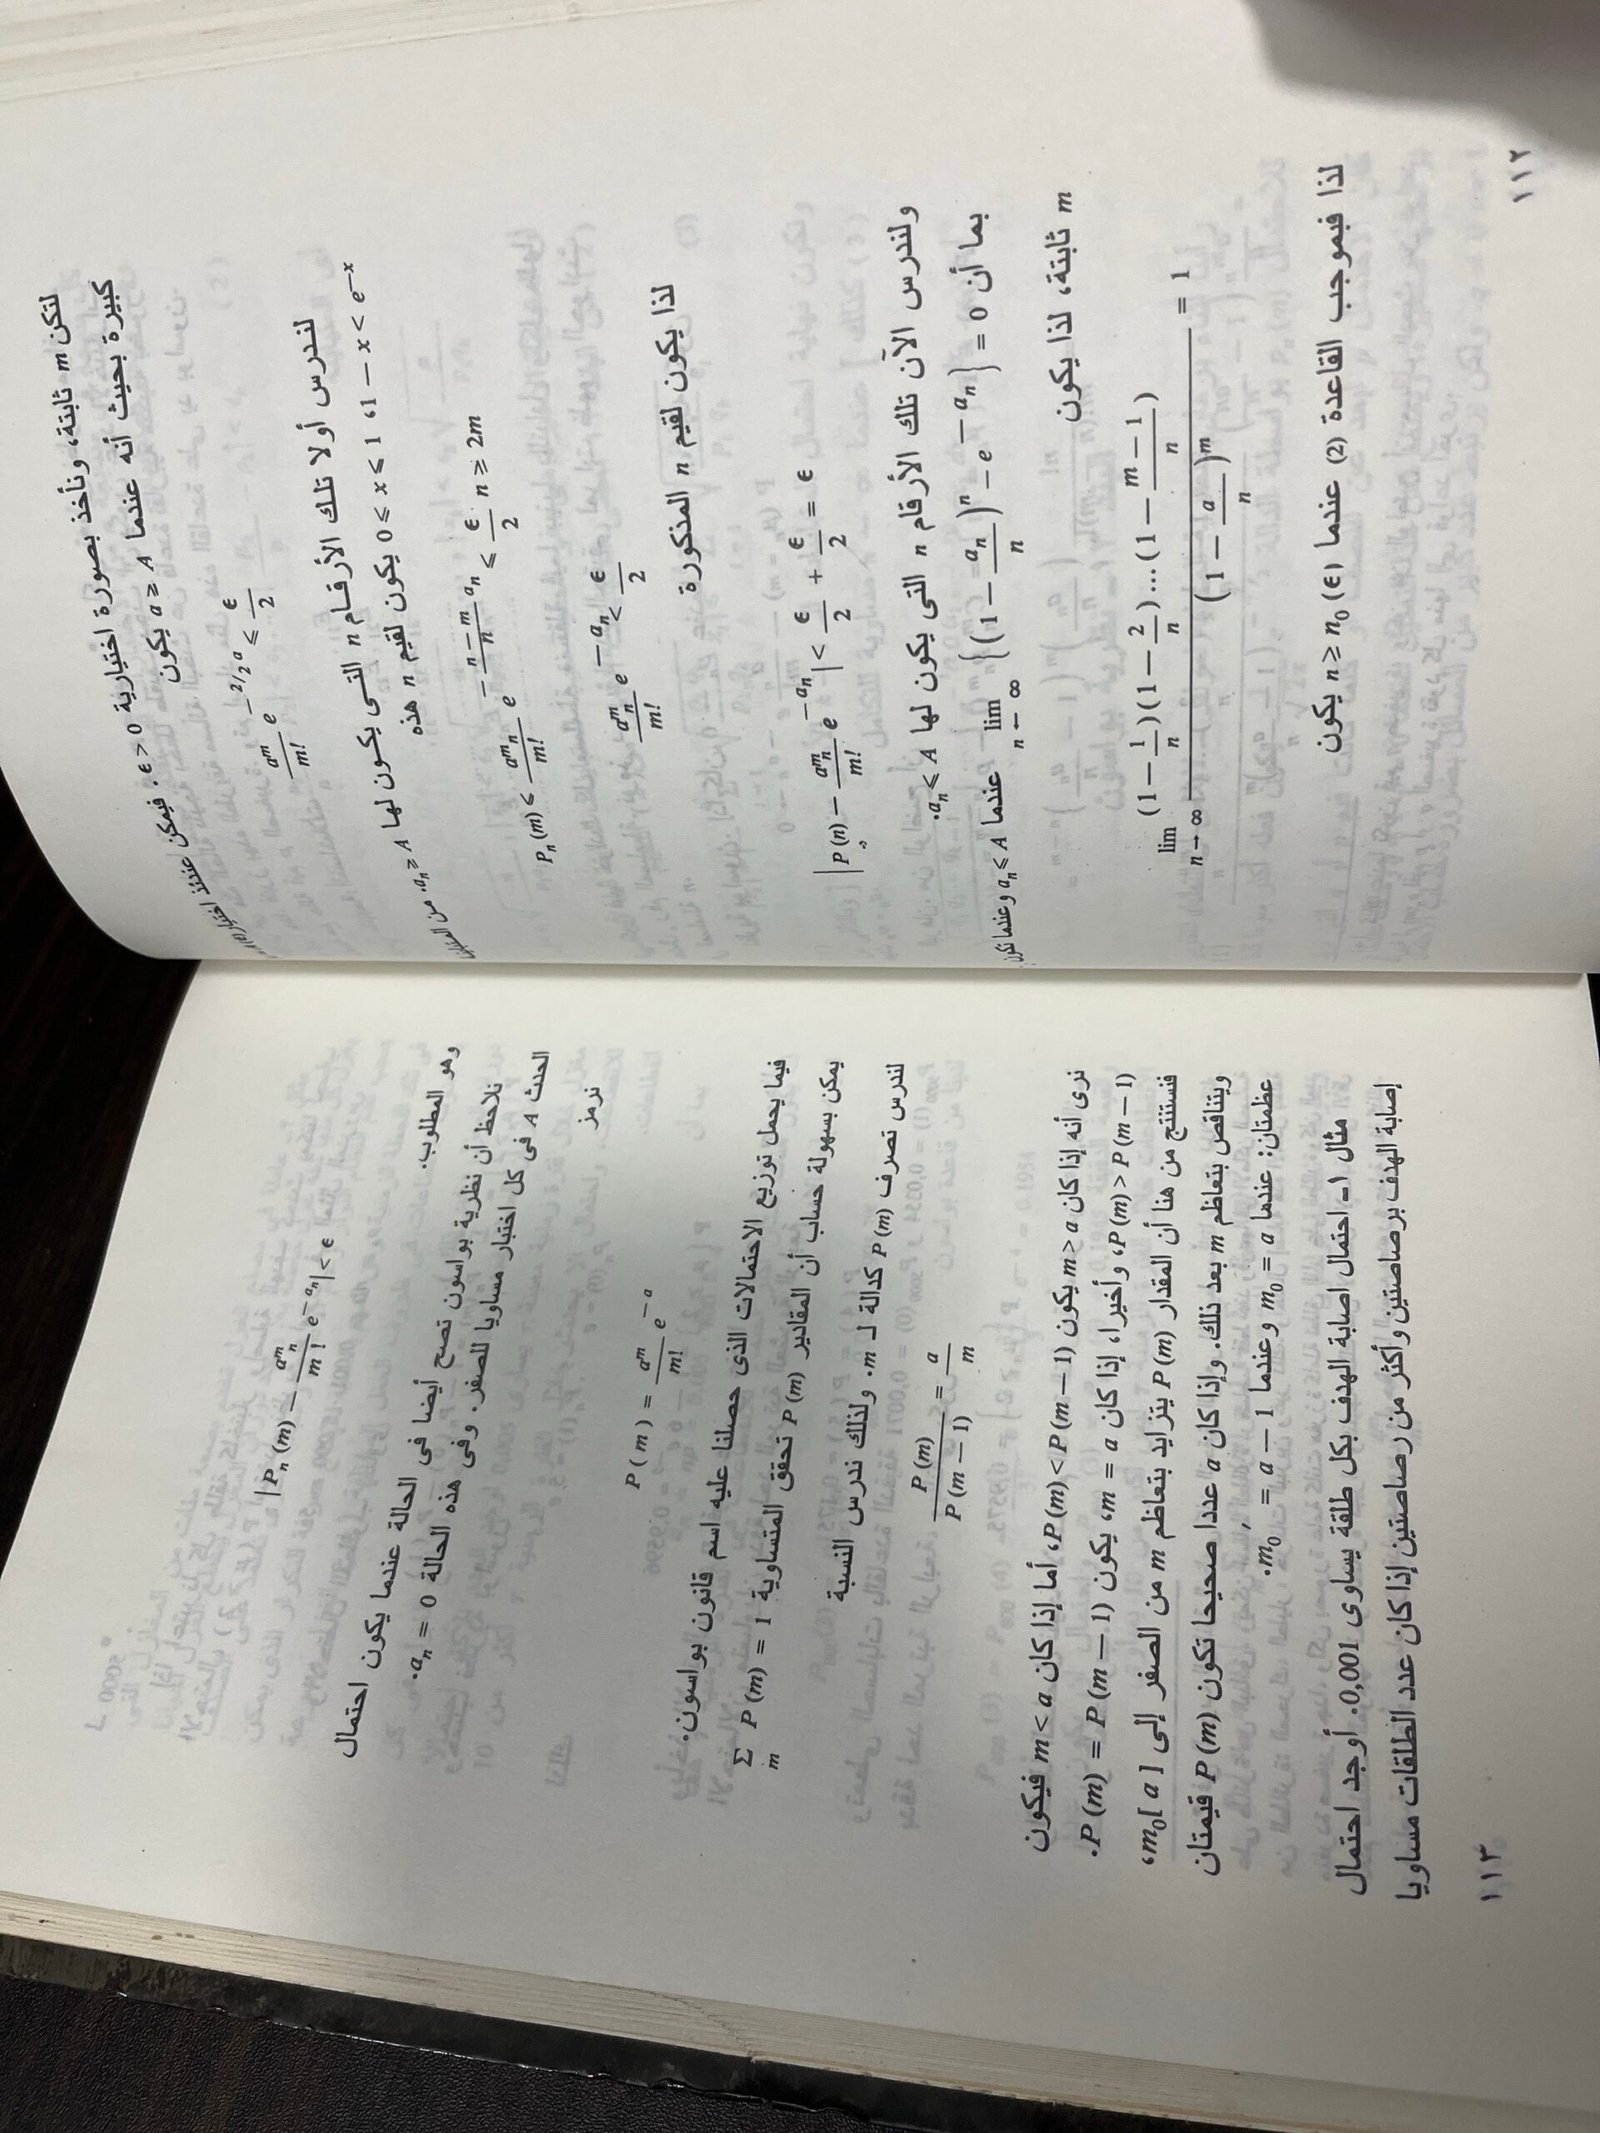 لتكن m ثابتة، ونأخذ بصورة اختيارية ε > 0 : فيمكن عندئذ اختيار
كبيرة بحيث أنه عندما a ⩾ A يكون
a^m/m! e^{−1/2 a} ⩽ ε/2
لندرس أولا تلك الأرقام n التى يكون لها a_n ⩾ A. من
0 ⩽ x ⩽ 1 ،1 − x < e^{−x} يكون لقيم n هذه
P_n (m) ⩽ a_n^m/m! e^{−(n − m)/n a_n} ⩽ ε/2 n ⩾ 2m
a_n^m/m! e^{− a_n} < ε/2
لذا يكون لقيم n المذكورة
| P (n) − a_n^m/m! e^{− a_n} | < ε/2 + ε/2 = ε
ولندرس الآن تلك الأرقام n التى يكون لها a_n ⩽ A.
بما أن lim_{n → ∞} { (1 − a_n/n)^n − e^{− a_n} } = 0 عندما a_n ⩽ A وعندما تكون
m ثابتة، لذا يكون
lim_{n → ∞} (1 − 1/n) (1 − 2/n) ... (1 − (m − 1)/n) / (1 − a/n)^m = 1
لذا فبموجب القاعدة (2) عندما n ⩾ n_0 (ε) يكون
١١٢
| P_n (m) − a_n^m/m ! e^{− a_n} | < ε
وهو المطلوب.
نلاحظ أن نظرية بواسون تصح أيضا فى الحالة عندما يكون احتمال
الحدث A فى كل اختبار مساويا للصفر. وفى هذه الحالة a_n = 0.
نرمز
P ( m ) = a^m/m! e^{− a}
فيما يحمل توزيع الاحتمالات الذى حصلنا عليه اسم قانون بواسون.
يمكن بسهولة حساب أن المقادير P (m) تحقق المتساوية Σ_m P (m) = 1
لندرس تصرف P (m) كدالة لـ m. ولذلك ندرس النسبة
P (m)/P (m − 1) = a/m
نرى أنه إذا كان m > a يكون P (m) < P (m − 1)، أما إذا كان m < a فيكون
P (m) > P (m − 1)، وأخيرا، إذا كان m = a، يكون P (m) = P (m − 1).
فنستنتج من هنا أن المقدار P (m) يتزايد بتعاظم m من الصفر إلى m_0 [ a ]،
ويتناقص بتعاظم m بعد ذلك. وإذا كان a عددا صحيحا تكون P (m) قيمتان
عظمتان: عندما m_0 = a وعندما m_0′ = a − 1.
مثال ١- احتمال اصابة الهدف بكل طلقة يساوى 0,001. أوجد احتمال
إصابة الهدف برصاصتين وأكثر من رصاصتين إذا كان عدد الطلقات مساويا
١١٣